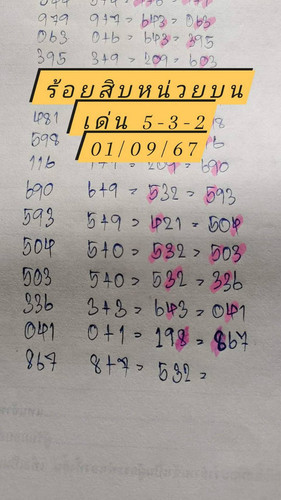 979 9+7= 643= 063
063 0+6= 643= 395
395 3+9= 209= 603
ร้อยสิบหน่วยบน
481
เด่น 5-3-2
598
01/09/67
116 1+1= 209= 690
690 6+9= 532= 593
593 5+9= 421= 504
504 5+0= 532= 503
503 5+0= 532= 336
336 3+3= 643= 041
041 0+1= 198= 867
867 8+7= 532=